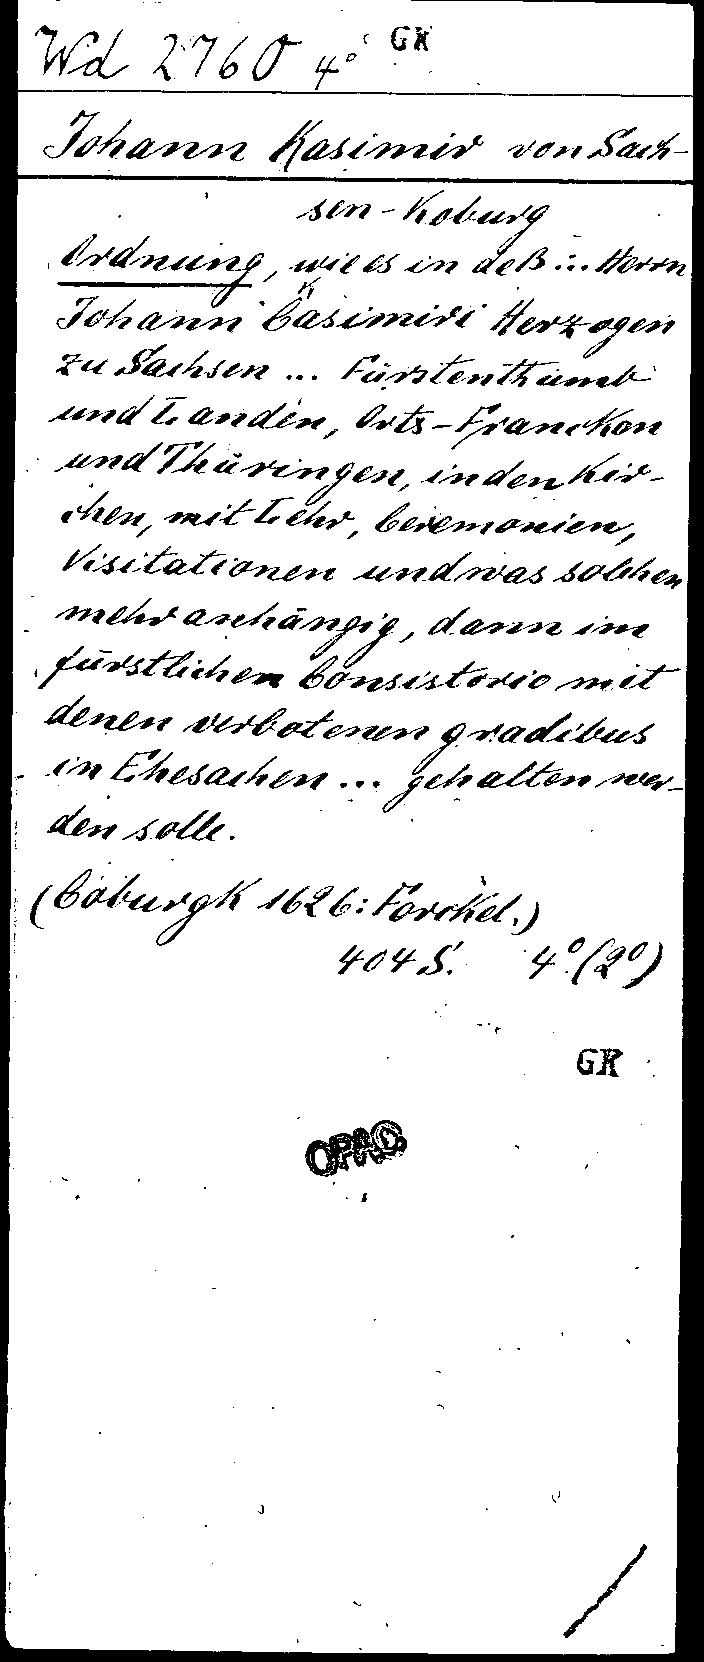 Wd 2760 4° GK
Johann Kasimir von Sach-
sen-Koburg
Ordnung, wie es in deß ... Herrn
Johann Casimiri Herzogen
zu Sachsen ... Fürstenthumb
und Landen, Orts-Francken
und Thüringen, in den Kir-
chen, mit Lehr, Ceremonien,
Visitationen und was solchen
mehr anhängig, dann im
fürstlichen Consistorio mit
denen verbotenen gradibus
in Ehesachen ... gehalten wer-
den solle.
(Coburgk 1626: Forckel.)
404 S. 4° (2°)
GK
OPAC